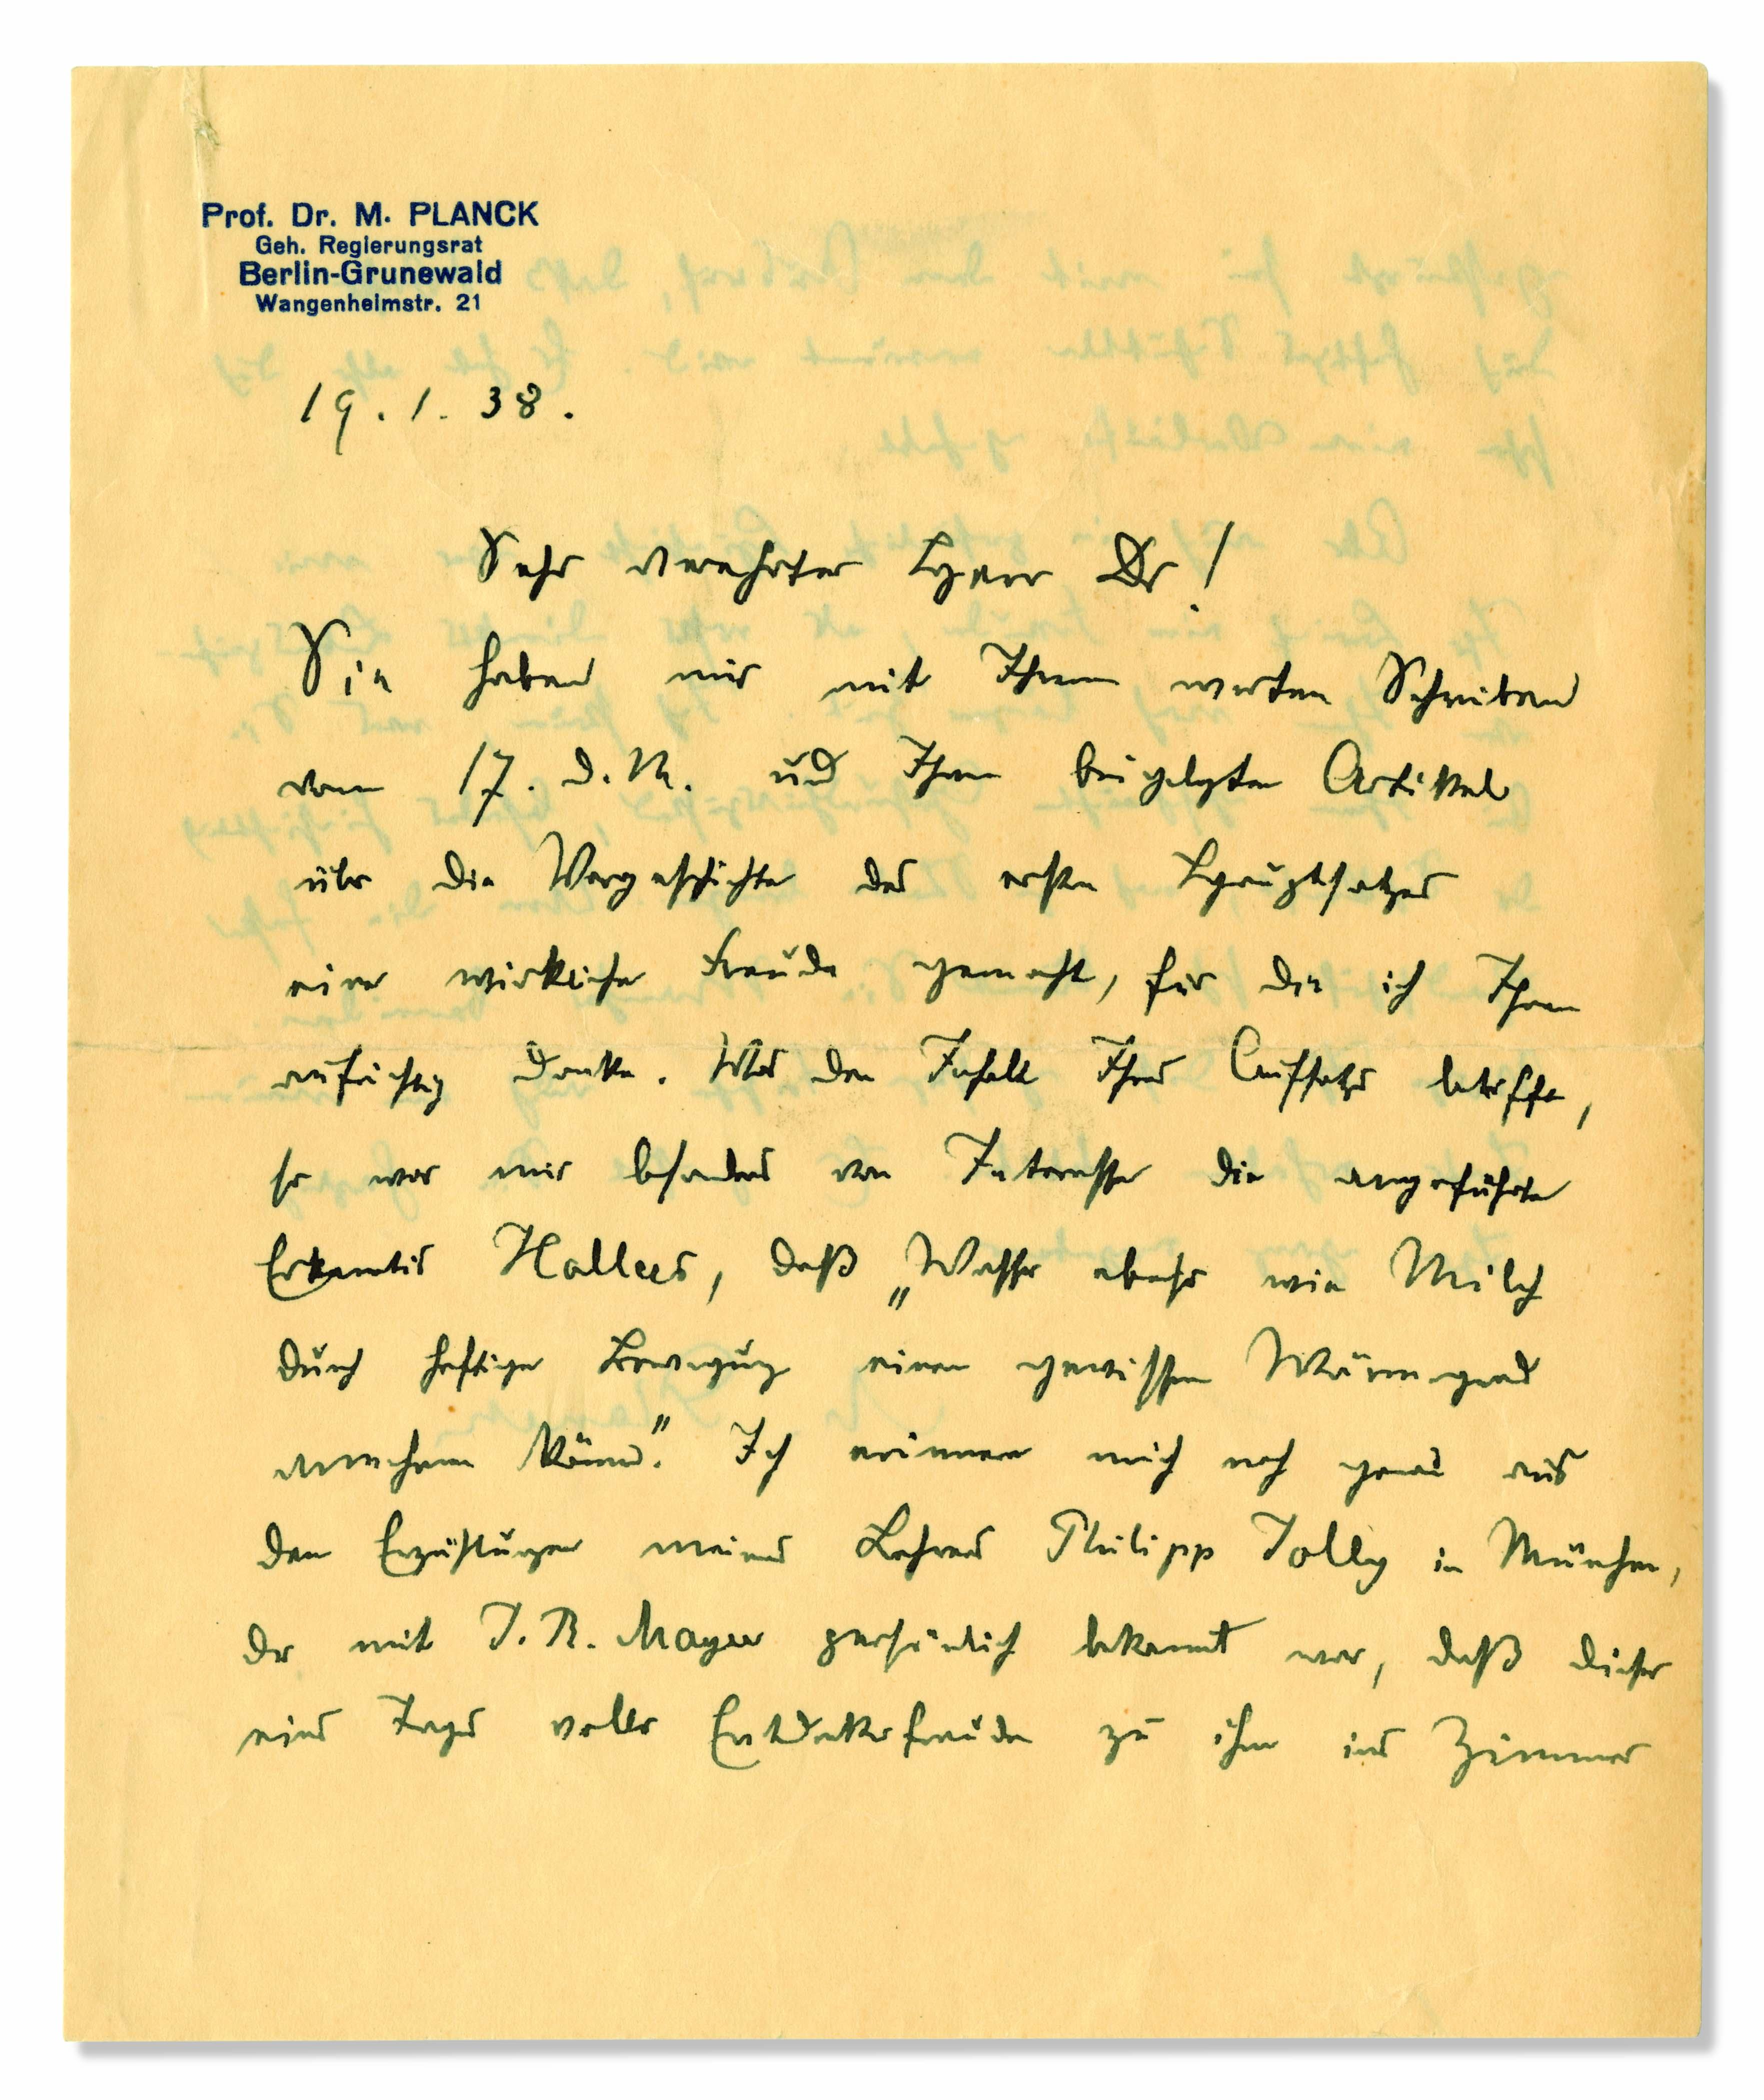 Prof. Dr. M. PLANCK
Geh. Regierungsrat
Berlin-Grunewald
Wangenheimstr. 21
19. 1. 38.
Sehr verehrter Herr Dr!
Sie haben mir mit Ihrem werten Schreiben
vom 17. d. M. und Ihrem beigelegten Artikel
über die Vorgeschichte des ersten Hauptsatzes
eine wirkliche Freude gemacht, für die ich Ihnen
aufrichtig danke. Was den Inhalt Ihres Aufsatzes betrifft,
so war mir besonders von Interesse die angeführte
Erkenntnis Hallers, daß „Wasser ebenso wie Milch
durch heftige Bewegung einen gewissen Wärmegrad
annehmen können". Ich erinnere mich noch genau aus
den Erzählungen meines Lehrers Philipp Jolly in München,
der mit J. R. Mayer persönlich bekannt war, daß dieser
eines Tages voller Entdeckerfreude zu ihm ins Zimmer